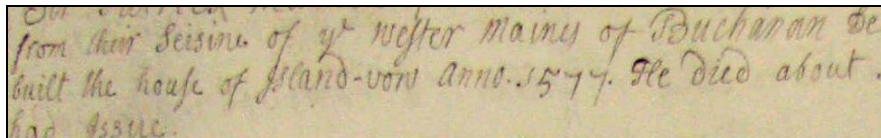 from their Seisine of yr Wester Maines of Buchanan De
built the house of Jsland-vow Anno. 1577. He died about
had Jssue.